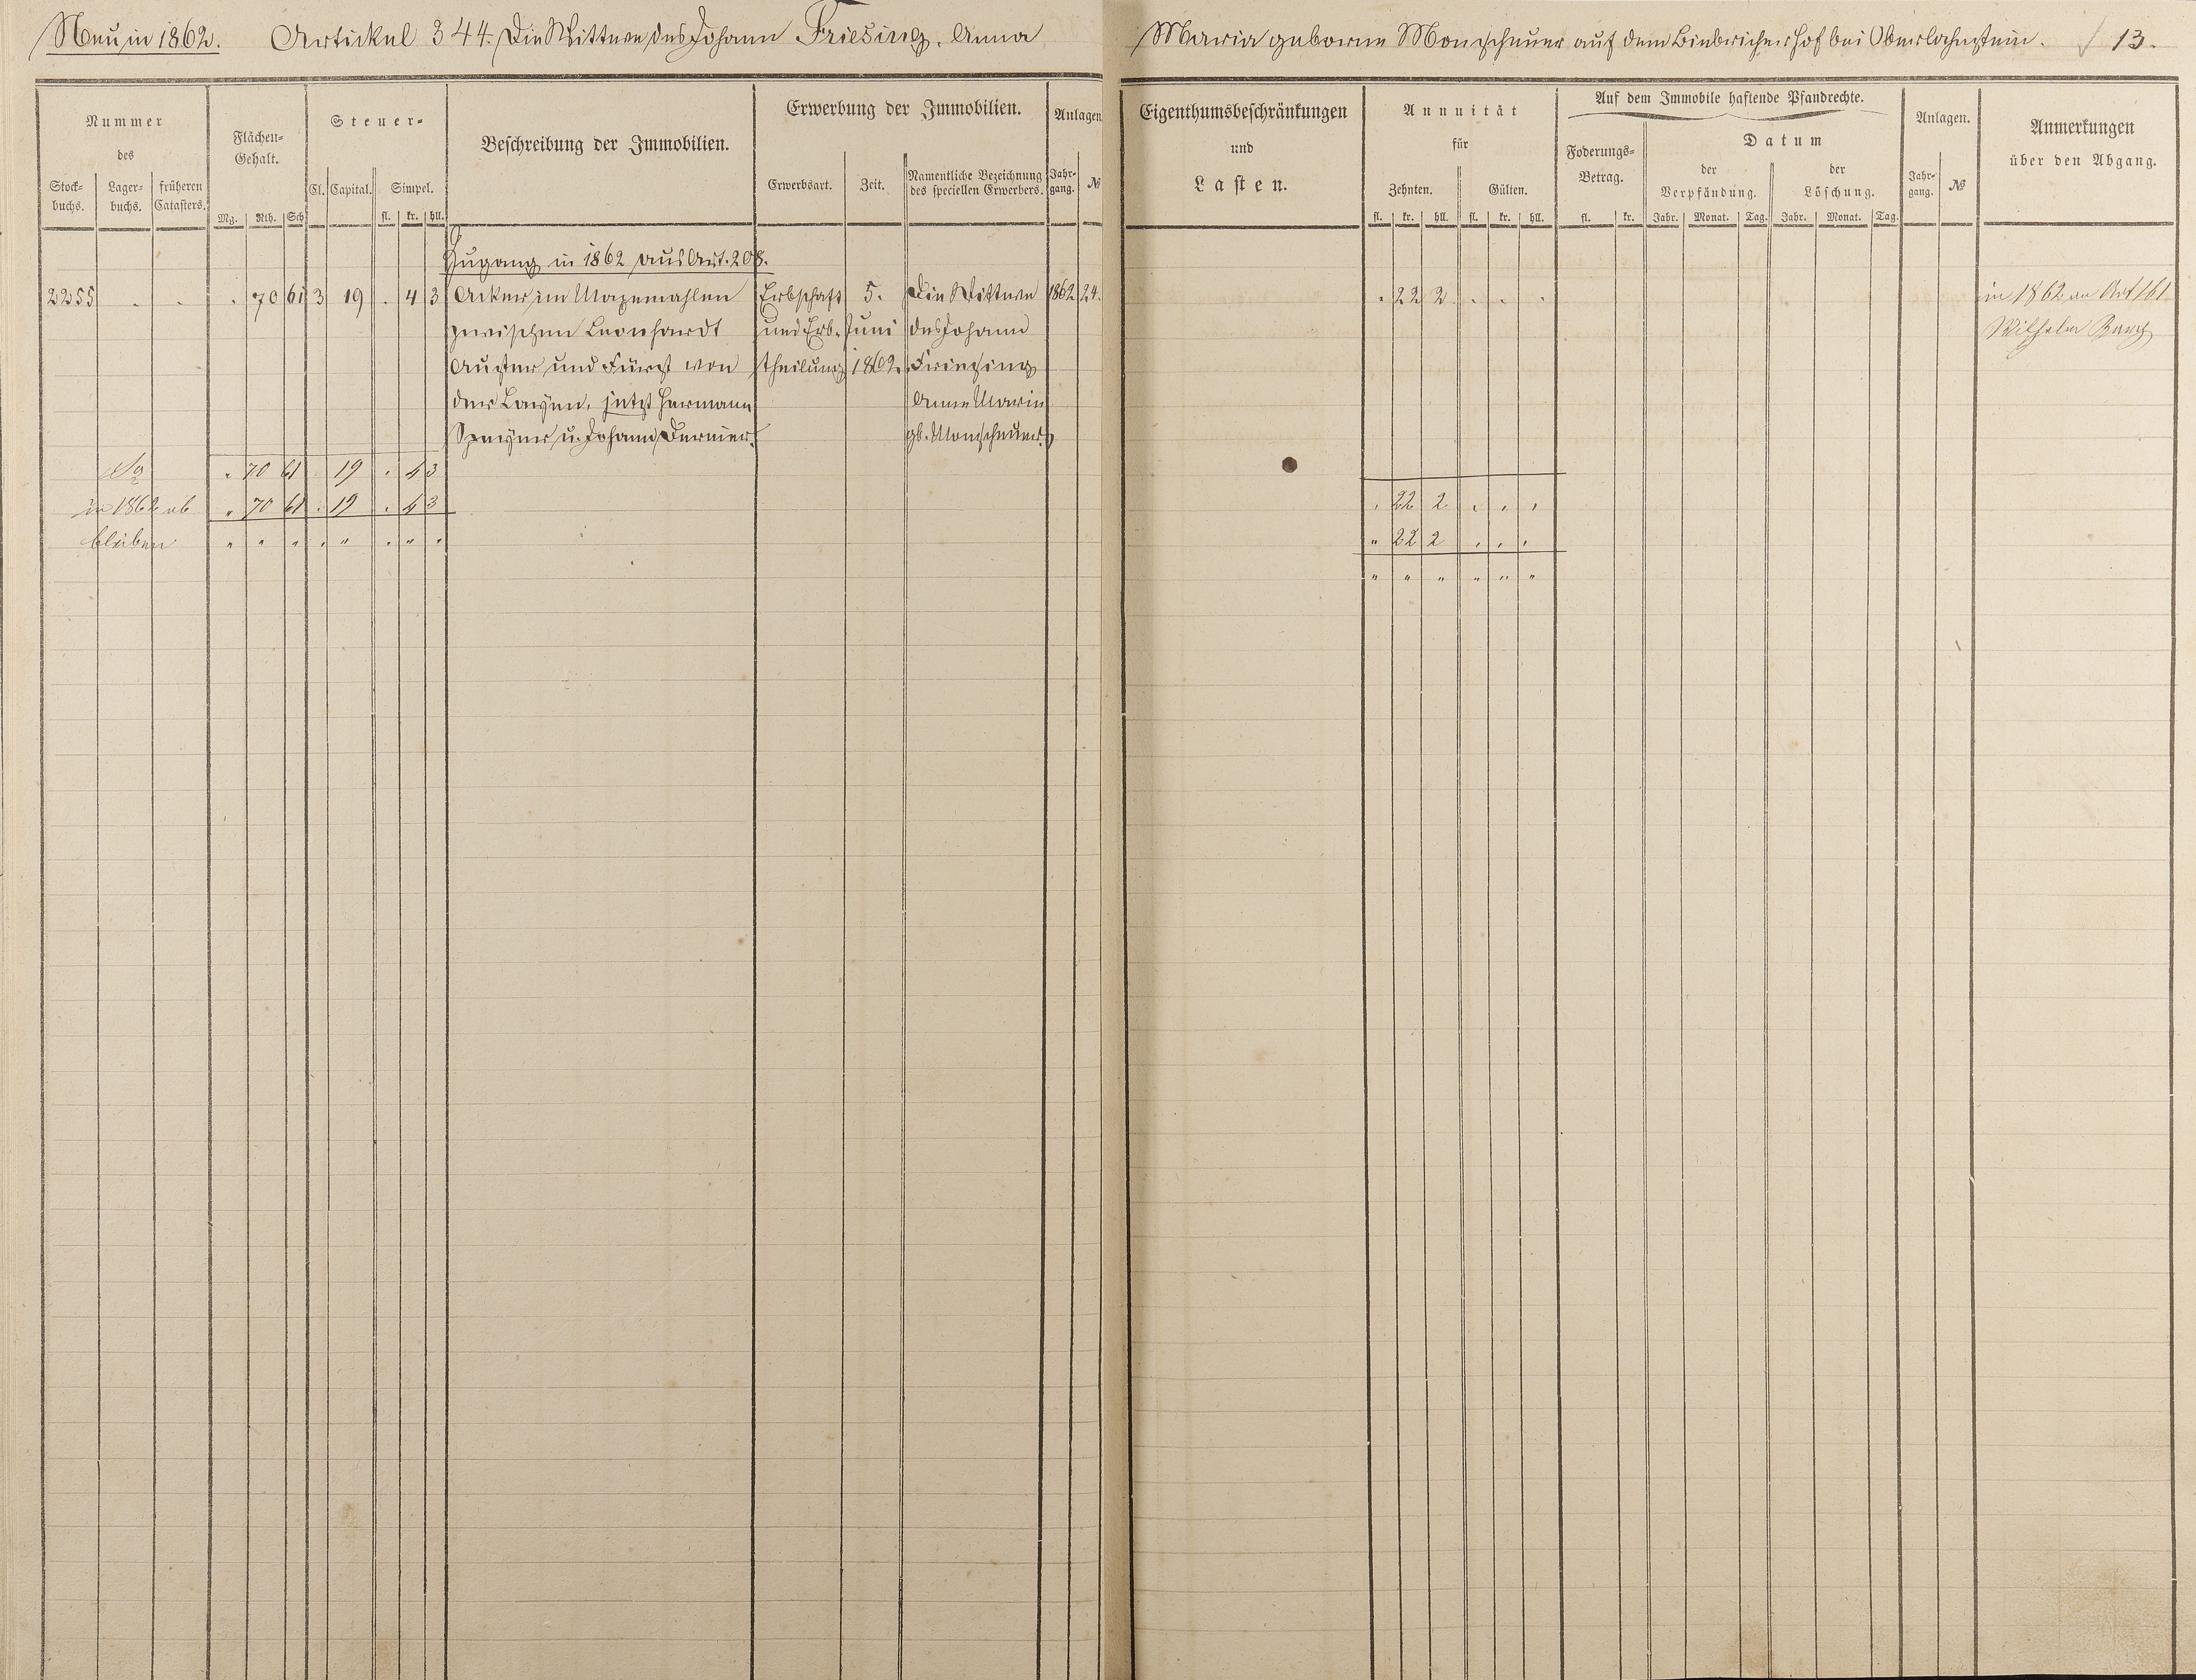 Neu in 1862. Artickel 344. Die Wittwe des Johann Friesing, Anna Maria geborne Monscheuer auf dem Biebricherhof bei Oberlahnstein. 13.
Nummer des
Stock-buchs. Lager-buchs. früheren Catasters.
Flächen-Gehalt.
Mg. Rth. Sch
Steuer-
Cl. Capital. Simpel.
fl. kr. hll.
Beschreibung der Immobilien.
Erwerbung der Immobilien.
Erwerbsart. Zeit. Namentliche Bezeichnung des speciellen Erwerbers.
Anlagen
Jahr-gang. №
Eigenthumsbeschränkungen
und
Lasten.
Annuität
für
Zehnten. Gülten.
fl. kr. hll. fl. kr. hll.
Auf dem Immobile haftende Pfandrechte.
Foderungs-Betrag.
fl. kr.
Datum
der Verpfändung. der Löschung.
Jahr. Monat. Tag. Jahr. Monat. Tag.
Anlagen.
Jahr-gang. №
Anmerkungen
über den Abgang.
Zugang in 1862 aus Art. 208.
2255 . . . 70 61 3 19 . 4 3 Acker im Mazemahlen Erbschaft 5. Die Wittwe 1862 24. . 22 2 . . . in 1862 an Art 161
zwischen Leonhardt und Erb- Juni des Johann Wilhelm
Auster und Fürst von theilung 1862. Friesing
der Leyen, jetzt Hermann Anna Maria
Speyer u. Johann Dernier. gb. Monscheuer.
Sa . 70 61 . 19 . 4 3 . 22 2 . . .
in 1862 ab " 70 61 . 19 . 4 3 " 22 2 . . .
bleiben " " " " " " " " " " " " " "